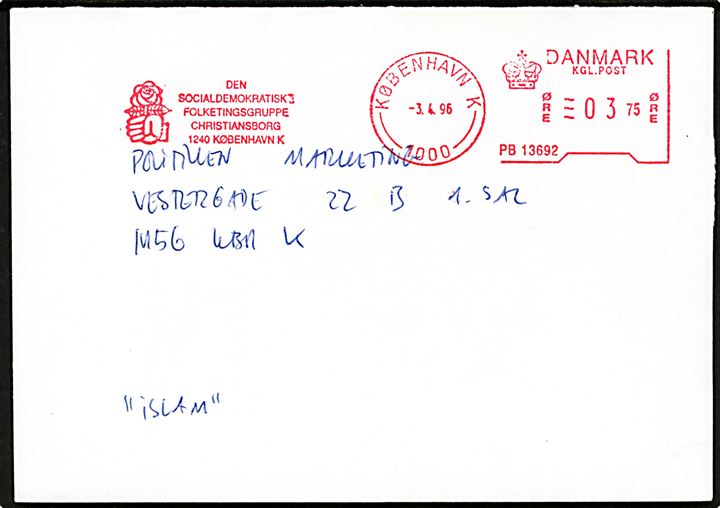 DEN
SOCIALDEMOKRATISKE
FOLKETINGSGRUPPE
CHRISTIANSBORG
1240 KØBENHAVN K
KØBENHAVN K
-3. 4. 96
1000
DANMARK
KGL. POST
ØRE 03 75 ØRE
PB 13692
POLITIKEN MARKETING
VESTERGADE 22 B 1. SAL
1456 KBH K
"ISLAM"